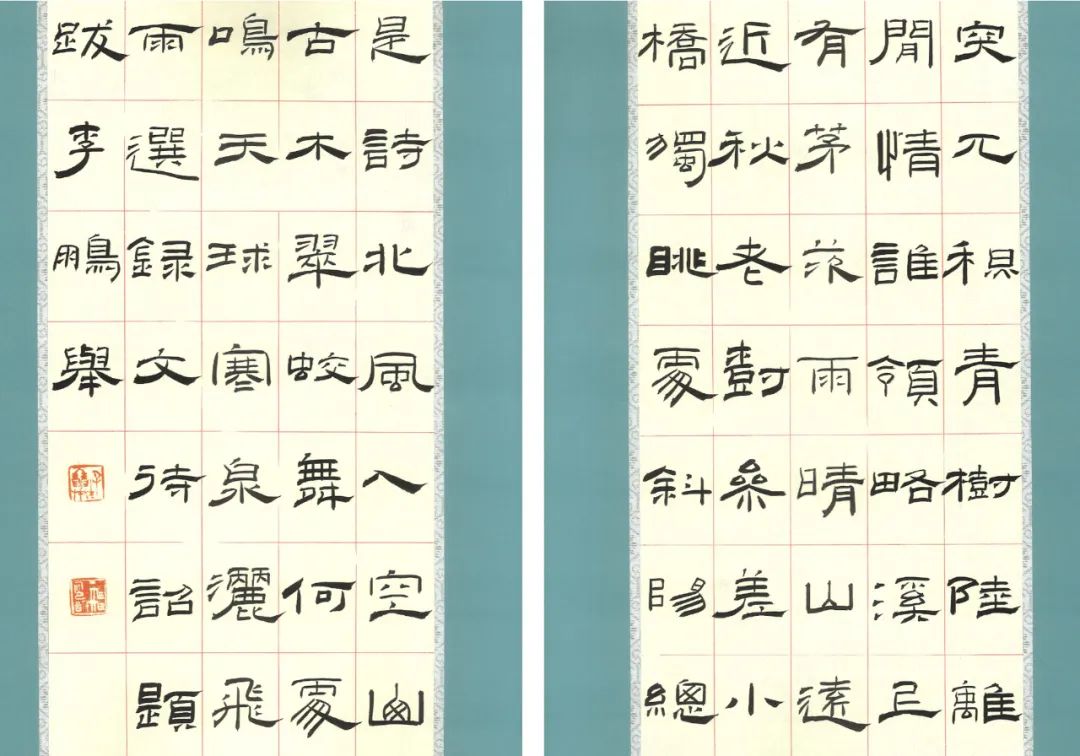 突兀積青樹陸離
閒情誰領略溪上
有茅茨雨晴山遠
近秋老樹參差小
橋獨眺處斜陽總
是詩北風入空山
古木翠蛟舞何處
鳴天球寒泉灑飛
雨選錄文待詔題
跋李鵬舉